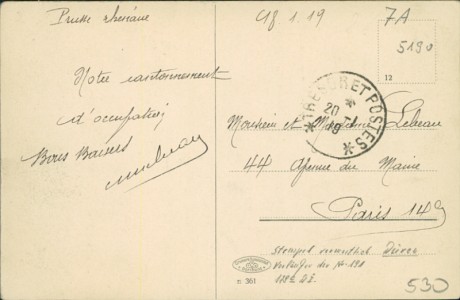 Prusse rhénane
Notre cantonnement
d'occupation
Bons Baisers
Cf 1.19
7A
5190
12
TRESOR ET POSTES
20
19
Monsieur et Madame Lebeau
44 Avenue du Maine
Paris 14e
Stempel
n 361
530